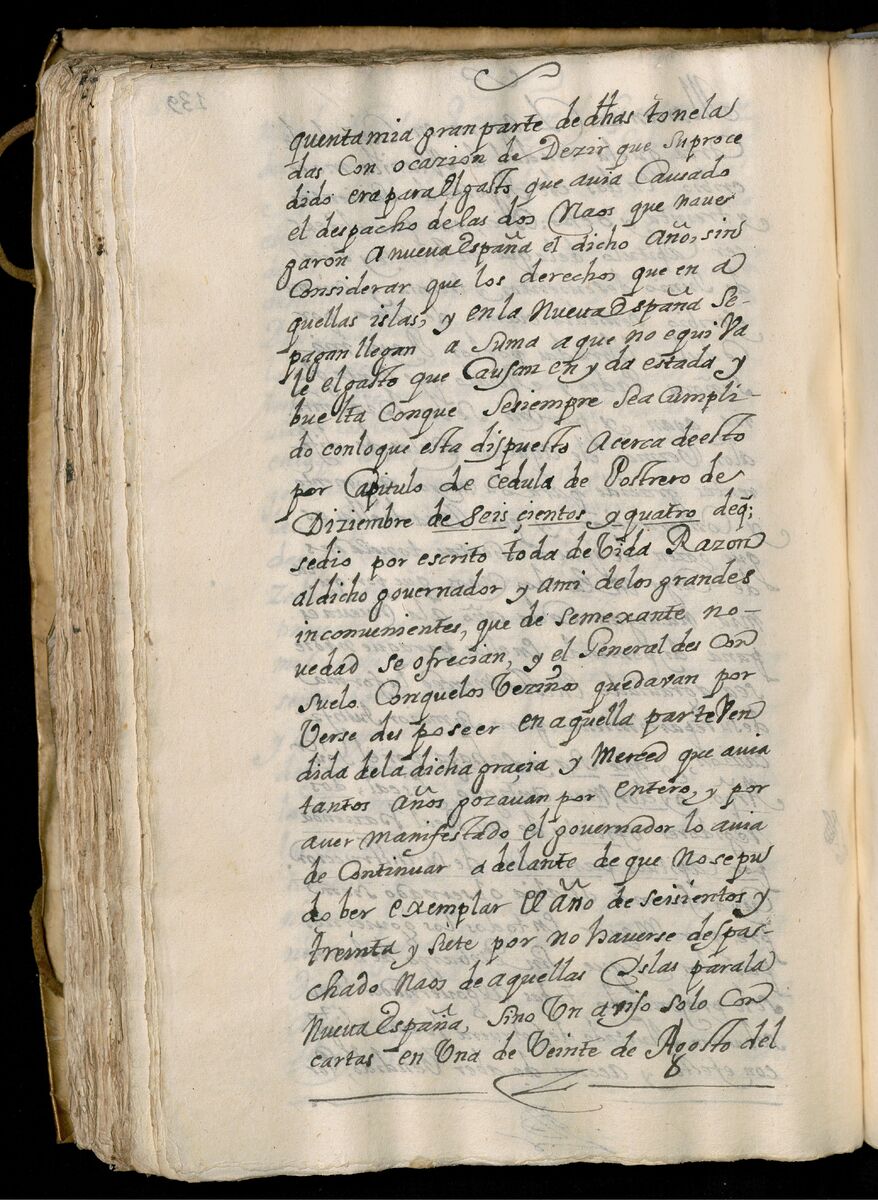 quenta mia gran parte de dhas tonela
das Con ocazion de Dezir que su proce
dido era para el gasto que avia Causado
el despacho de las dos Naos que nave
garon a nueva España el dicho Año, sin
Considerar que los derechos que en a
quellas islas, y en la Nueva España Se-
pagan llegan a Suma a que no equi Va
le el gasto que Causan en y da estada y
buelta Conque Sesiempre Sea Cumpli-
do conloque esta dispuesto Acerca de esto
por Capitulo de cedula de Postrero de
Diziembre de seis cientos y quatro de q;
se dio por escrito toda devida Razon
al dicho governador y ami de los grandes
inconvenientes, que de semexante no-
vedad se ofrecian, y el General des Con
suelo Conque los Vezinos quedavan por
Verse des poseer en aquella parte Ven
dida de la dicha gracia y Merced que avia
tantos Años gozavan por entero, y por
aver manifestado el governador lo avia
de Continuar adelante de que No se pu
do ver exemplar El año de seisientos y
treinta y siete por no haverse despas-
chado Naos de aquellas Islas para la
Nueva España, Sino Un aviso solo Con
cartas en Una de Veinte de Agosto del
139